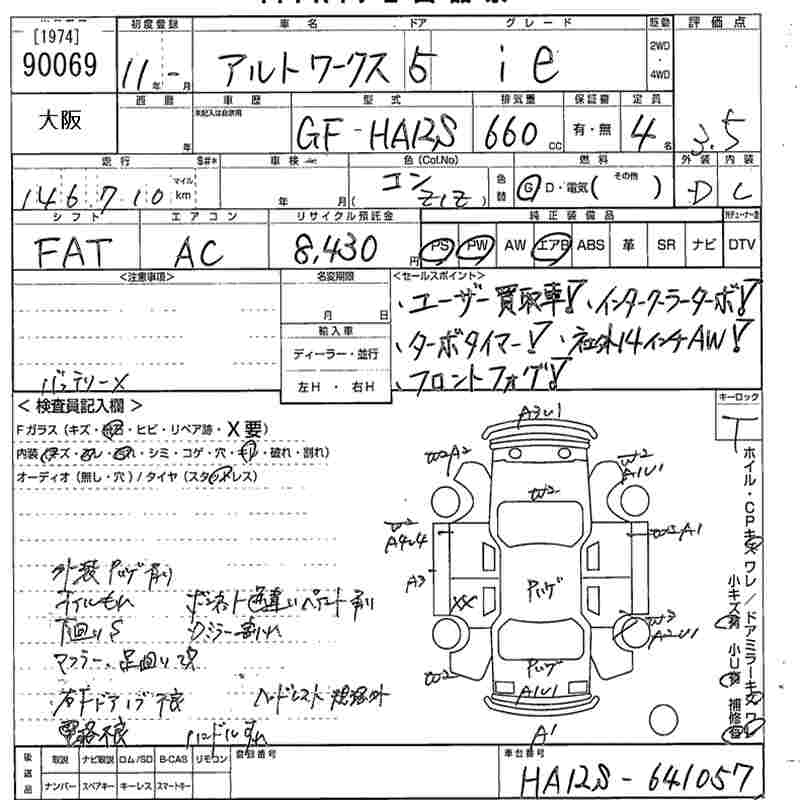 [1974]
90069
大阪
初度登録 車名 ドア グレード 駆動 評価点
11年 - 月 アルトワークス 5 ie 2WD・4WD 3.5
西暦 年 車歴 未記入は自家用 型式 排気量 保証書 定員
GF-HA12S 660cc 有・無 4名
走行 $#* 車検 色(Col.No) 燃料 その他 外装 内装
146710 マイル km 年 月 ( コン Z1Z ) 色替 G D・電気( ) D C
シフト エアコン リサイクル預託金 純正装備品
FAT AC 8,430円 PS PW AW エアB ABS 革 SR ナビ DTV
<注意事項> 名変期限 <セールスポイント>
月 日
輸入車
ディーラー・並行
左H・右H
・ユーザー買取車! ・インタークーラーターボ!
・ターボタイマー! ・社外14インチAW!
・フロントフォグ!
バッテリー×
<検査員記入欄> キーロック
Fガラス(キズ・飛石・ヒビ・リペア跡・X要) T
内装(キズ・汚レ・スレ・シミ・コゲ・穴・キレ・破れ・割れ)
オーディオ(無し・穴)/タイヤ(スタッドレス)
ホイル・CPキズ ワレ/ドアミラーキズ ワレ
小キズ有 小U有 補修有
A3U1
W2 A2
W2 A1U1
W2
W2
W2 A1
A3
XX
W3 A2U1
W2
A1U1
A1
オイルもれ ボンネット色違いペイント有り
下回りS
マフラー、足回り改
ヘッドレスト規格外
ハンドルすれ
後送品 取説 ナビ取説 ロム/SD B-CAS リモコン 登録番号 車台番号
ナンバー スペアキー キーレス スマートキー
HA12S-641057